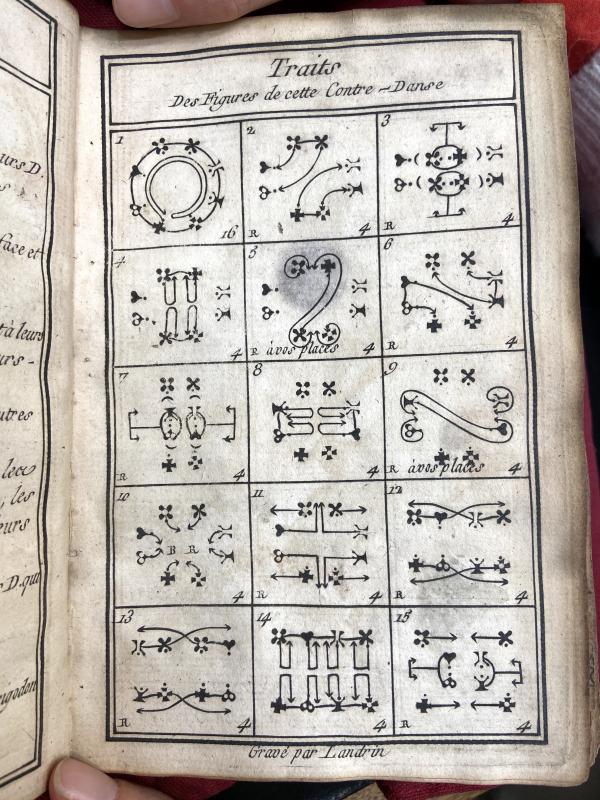 Traits
Des Figures de cette Contre-Danse
1 16
2 R 4
3 4
4 4
5 R àvos places 4
6 R 4
7 R 4
8 4
9 R àvos places 4
10 B R 4
11 R 4
12 4
13 R 4
14 4
15 R 4
Gravé par Landrin
urs D.
face et
t à leurs
urs-
utres
les
eurs
D. qui